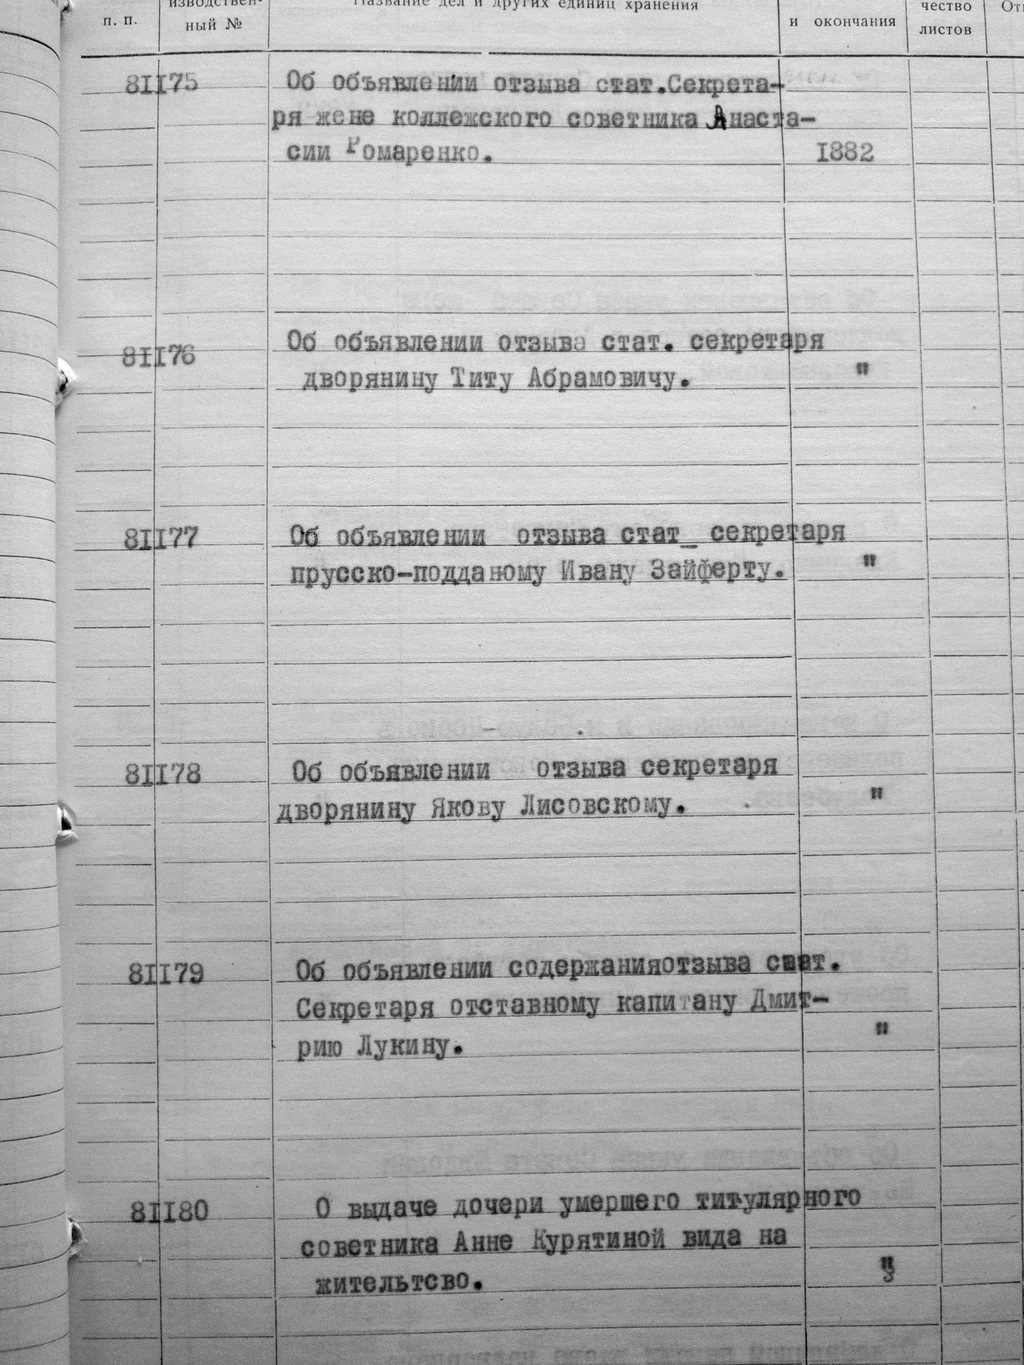 п. п.
изводствен-
ный №
Название дел и других единиц хранения
и окончания
чество
листов
От
81175 Об объявлении отзыва стат.Секрета-
ря жене коллежского советника Анаста-
сии Ромаренко. 1882
81176 Об объявлении отзыва стат. секретаря
дворянину Титу Абрамовичу. "
81177 Об объявлении отзыва стат_ секретаря
прусско-подданому Ивану Зайферту. "
81178 Об объявлении отзыва секретаря
дворянину Якову Лисовскому. "
81179 Об объявлении содержанияотзыва стат.
Секретаря отставному капитану Дмит-
рию Лукину. "
81180 О выдаче дочери умершего титулярного
советника Анне Курятиной вида на
жительтсво. "